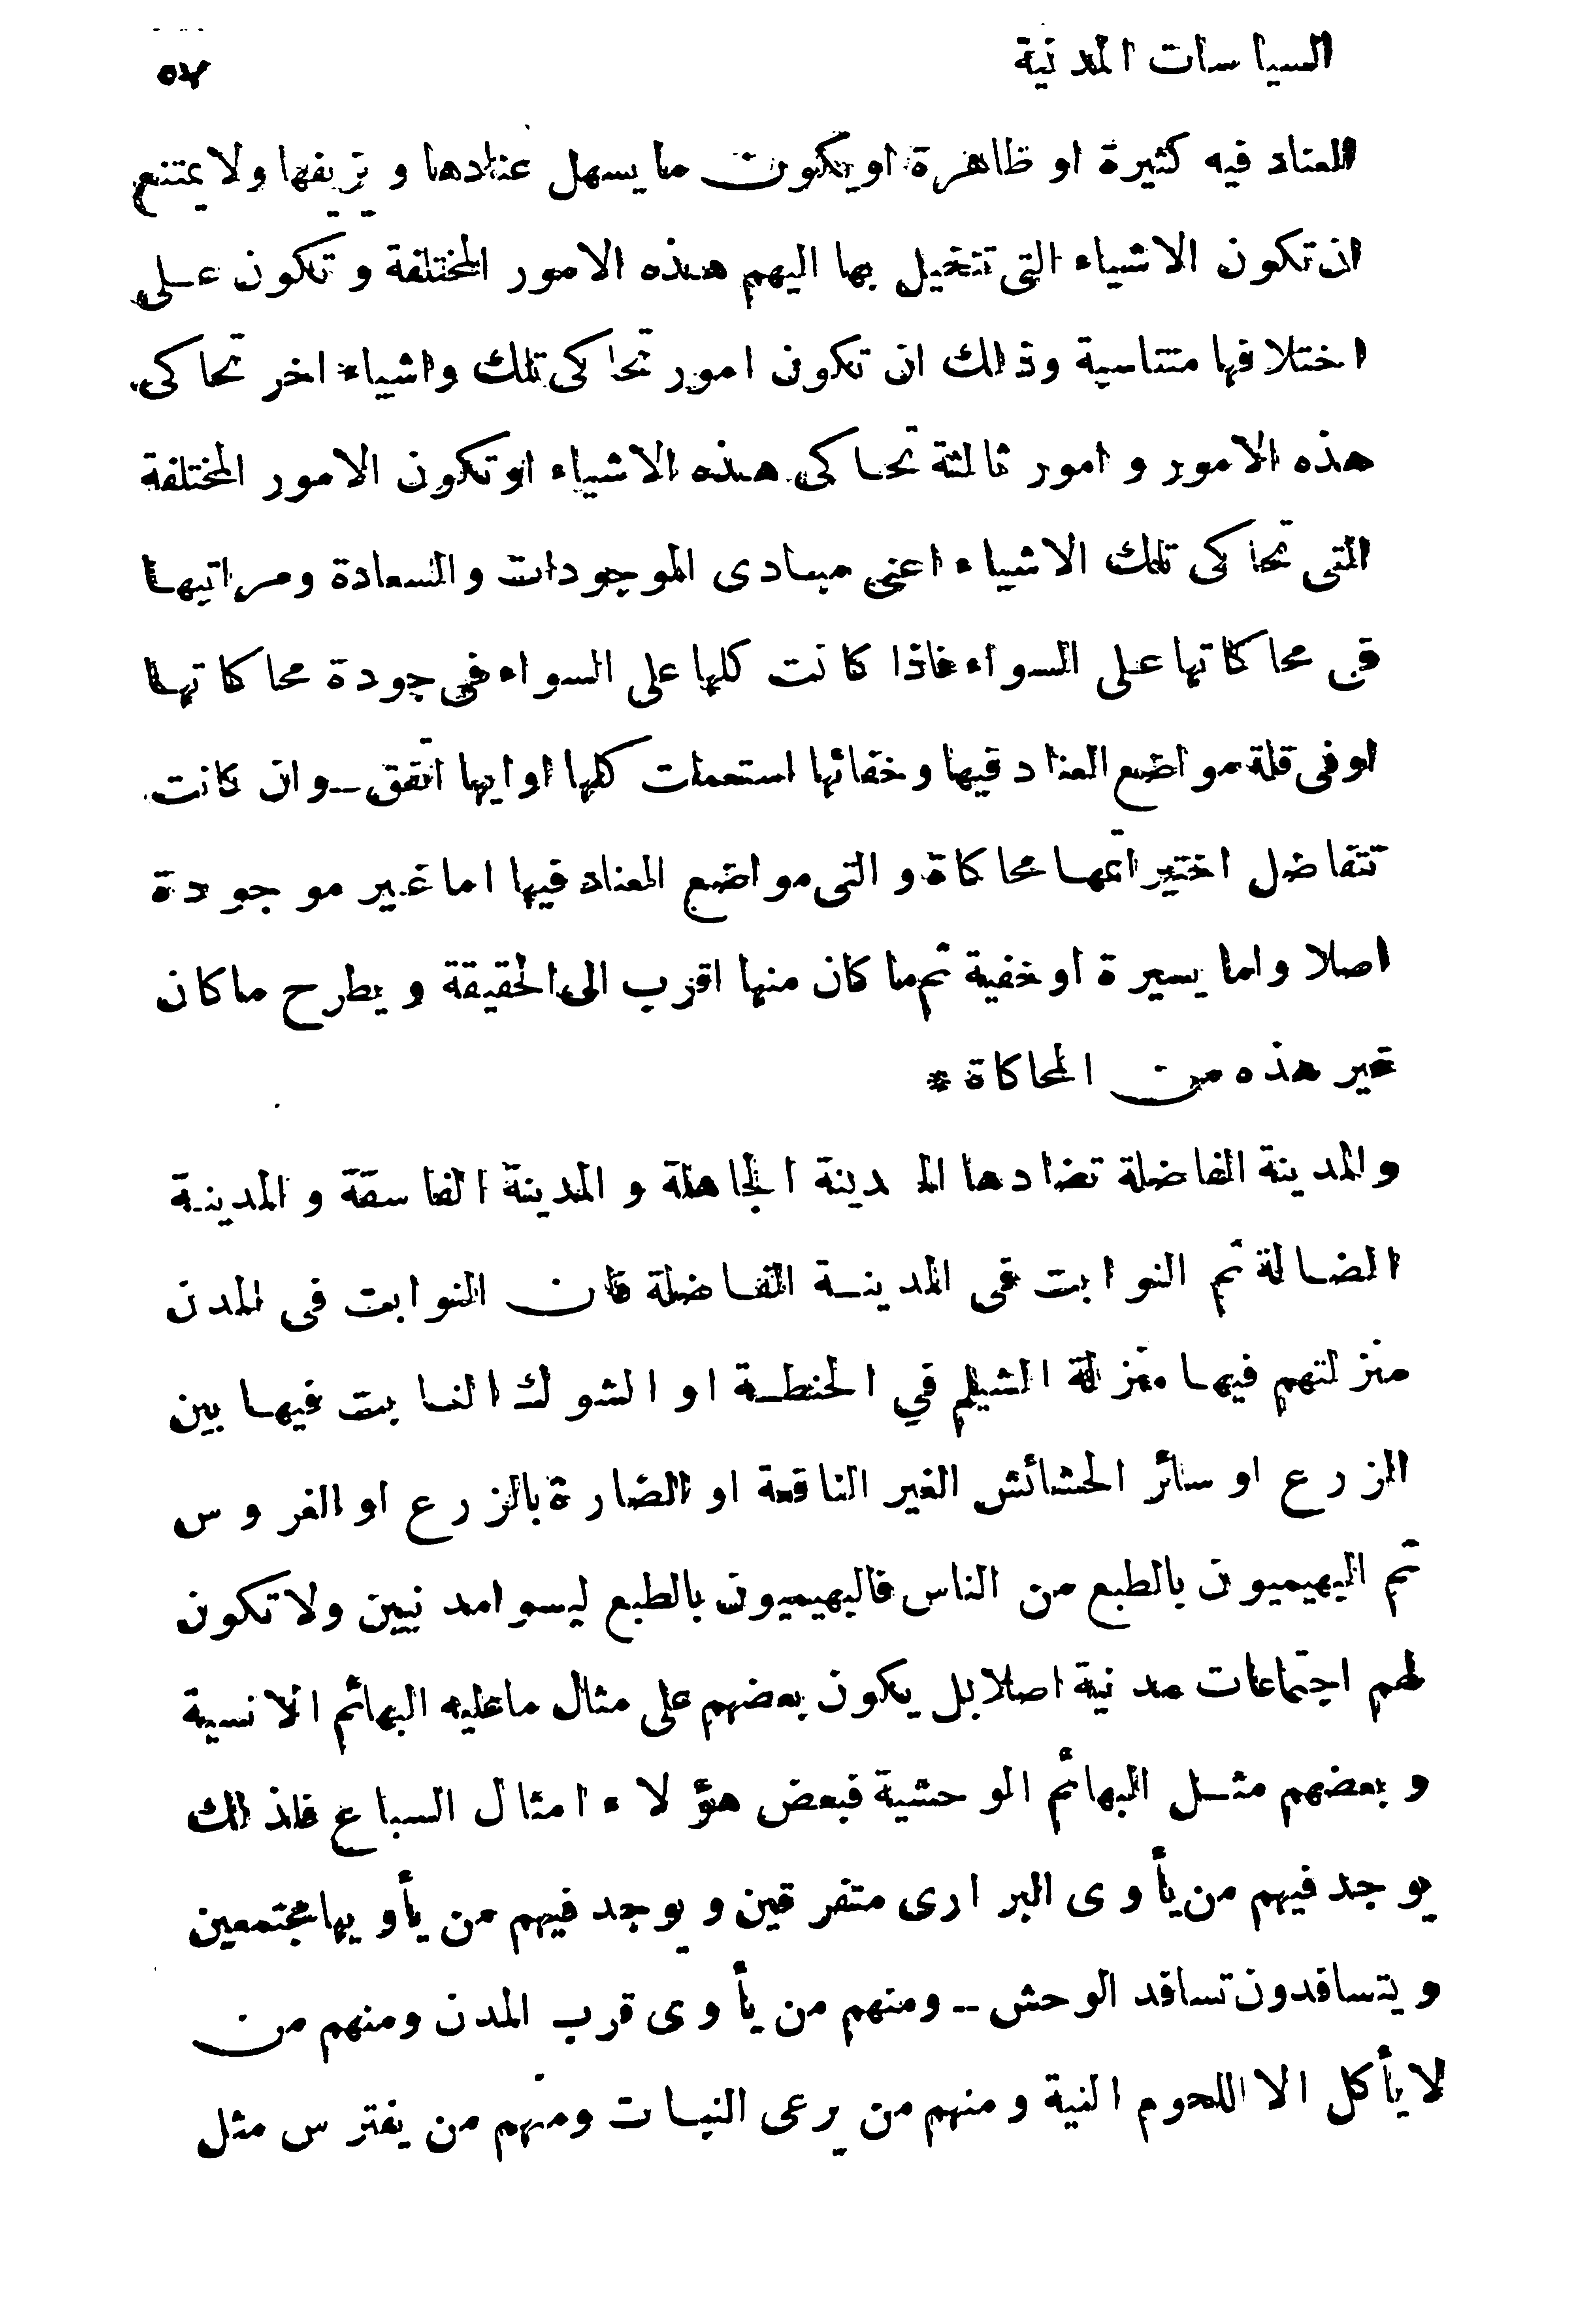 السياسات المدنية ٥٧
العناد فيه كثيرة او ظاهرة او يكون ما يسهل عنادها و تزييفها ولا يمتنع
ان تكون الاشياء التى تتخيل بها اليهم هذه الامور المختلفة و تكون على
اختلافها متناسبة وذلك ان تكون امور تحاكى تلك واشياء اخر تحاكى
هذه الامور و امور ثالثة تحاكى هذه الاشياء او تكون الامور المختلفة
التى تحاكى تلك الاشياء اعنى مبادى الموجودات والسعادة ومراتبها
فى محاكاتها على السواء فاذا كانت كلها على السواء فى جودة محاكاتها
او فى قلة مواضع العناد فيها و خفائها استعملت كلها او ايها اتفق ــ وان كانت
تتفاضل اختير اتمها محاكاة و التى مواضع العناد فيها اما غير موجودة
اصلا واما يسيرة او خفية ثم ما كان منها اقرب الى الحقيقة و يطرح ما كان
غير هذه من المحاكاة *
والمدينة الفاضلة تضادها المدينة الجاهلة و المدينة الفاسقة و المدينة
الضالة ثم النوابت فى المدينة الفاضلة فان النوابت فى المدن
منزلتهم فيها منزلة الشيلم في الحنطة او الشوك النابت فيها بين
الزرع او سائر الحشائش الغير النافعة او الضارة بالزرع او الغروس
ثم البهيميون بالطبع من الناس فالبهيميون بالطبع ليسوا مدنيين ولا تكون
لهم اجتماعات مدنية اصلا بل يكون بعضهم على مثال ما عليه البهائم الانسية
و بعضهم مثل البهائم الوحشية فبعض هؤلاء امثال السباع فلذلك
يوجد فيهم من يأوى البرارى متفرقين و يوجد فيهم من يأويها مجتمعين
و يتسافدون تسافد الوحش ــ ومنهم من يأوى قرب المدن ومنهم من
لا يأكل الا اللحوم النية و منهم من يرعى النبات ومنهم من يفترس مثل